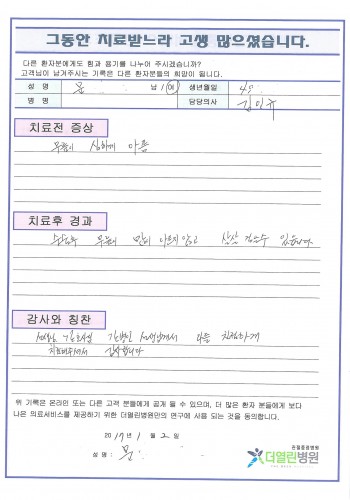 그동안 치료받느라 고생 많으셨습니다.
다른 환자분에게도 힘과 용기를 나누어 주시겠습니까?
고객님이 남겨주시는 기록은 다른 환자분들의 희망이 됩니다.
성 명 문 남 / 여 생년월일 48.
병 명 담당의사
치료전 증상
무릎이 심하게 아픔
치료후 경과
무릎이 많이 아프지 않고 있습니다.
감사와 칭찬
선생님 간병인 선생님께서 너무 친절하게
치료해주셔서 감사합니다
위 기록은 온라인 또는 다른 고객 분들에게 공개 될 수 있으며, 더 많은 환자 분들에게 보다
나은 의료서비스를 제공하기 위한 더열린병원만의 연구에 사용 되는 것을 동의합니다.
2017년 1 월 2 일
성 명 : 문
관절중점병원
더열린병원